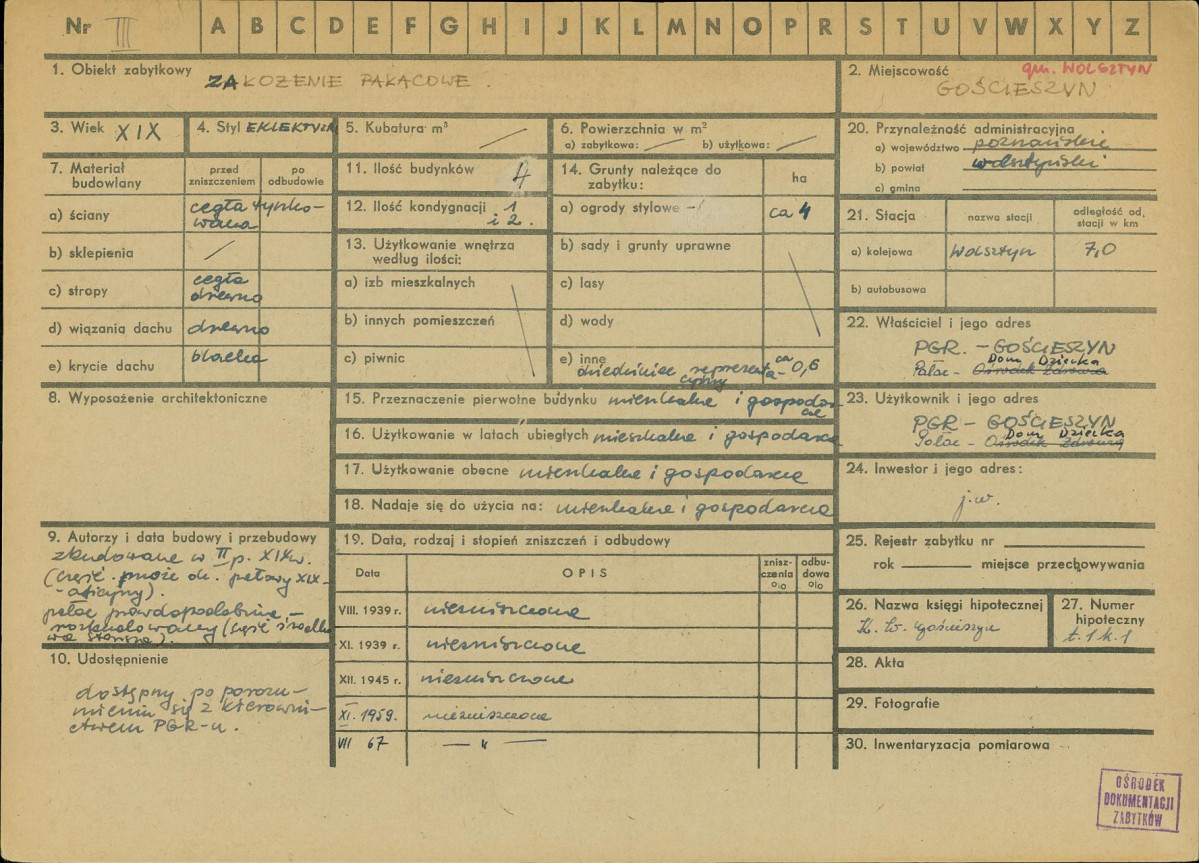 Nr III A B C D E F G H I J K L M N O P R S T U V W X Y Z
1. Obiekt zabytkowy
ZAŁOŻENIE PAŁACOWE.
2. Miejscowość
gm. WOLSZTYN
GOŚCIESZYN
3. Wiek XIX
4. Styl EKLEKTYZM
5. Kubatura m³
6. Powierzchnia w m²
a) zabytkowa:
b) użytkowa:
20. Przynależność administracyjna
a) województwo poznańskie
b) powiat wolsztyński
c) gmina
7. Materiał budowlany
przed zniszczeniem
po odbudowie
a) ściany
cegła tynko-
wana
b) sklepienia
c) stropy
cegła
drewno
d) wiązania dachu drewno
e) krycie dachu blacha
11. Ilość budynków 4
12. Ilość kondygnacji 1
i 2.
13. Użytkowanie wnętrza
według ilości:
a) izb mieszkalnych
b) innych pomieszczeń
c) piwnic
14. Grunty należące do
zabytku:
ha
a) ogrody stylowe ca 4
b) sady i grunty uprawne
c) lasy
d) wody
e) inne
dziedziniec reprezenta-
cyjny
ca 0,6
21. Stacja
nazwa stacji
odległość od
stacji w km
a) kolejowa Wolsztyn 7,0
b) autobusowa
22. Właściciel i jego adres
PGR. - GOŚCIESZYN
Dom Dziecka
Pałac - Ośrodek Zdrowia
8. Wyposażenie architektoniczne
15. Przeznaczenie pierwotne budynku mieszkalne i gospodar
cze
16. Użytkowanie w latach ubiegłych mieszkalne i gospodarcze
17. Użytkowanie obecne mieszkalne i gospodarcze
18. Nadaje się do użycia na: mieszkalne i gospodarcze
23. Użytkownik i jego adres
PGR - GOŚCIESZYN
Dom Dziecka
Pałac - Ośrodek Zdrowia
24. Inwestor i jego adres:
j.w.
9. Autorzy i data budowy i przebudowy
zbudowane w II p. XIX w.
(część może ok. połowy XIX -
- oficyny).
pałac prawdopodobnie -
rozbudowany (część środko
wa starsza).
10. Udostępnienie
dostępny po porozu-
mieniu się z kierowni-
ctwem PGR-u.
19. Data, rodzaj i stopień zniszczeń i odbudowy
Data
OPIS
znisz-
czenia
%
odbu-
dowa
%
VIII. 1939 r. niezniszczone
XI. 1939 r. niezniszczone
XII. 1945 r. niezniszczone
XI. 1959. niezniszczone
VII 67 — " —
25. Rejestr zabytku nr
rok miejsce przechowywania
26. Nazwa księgi hipotecznej
K. W. Gościeszyn
27. Numer
hipoteczny
t. 1 k. 1
28. Akta
29. Fotografie
30. Inwentaryzacja pomiarowa
OŚRODEK
DOKUMENTACJI
ZABYTKÓW